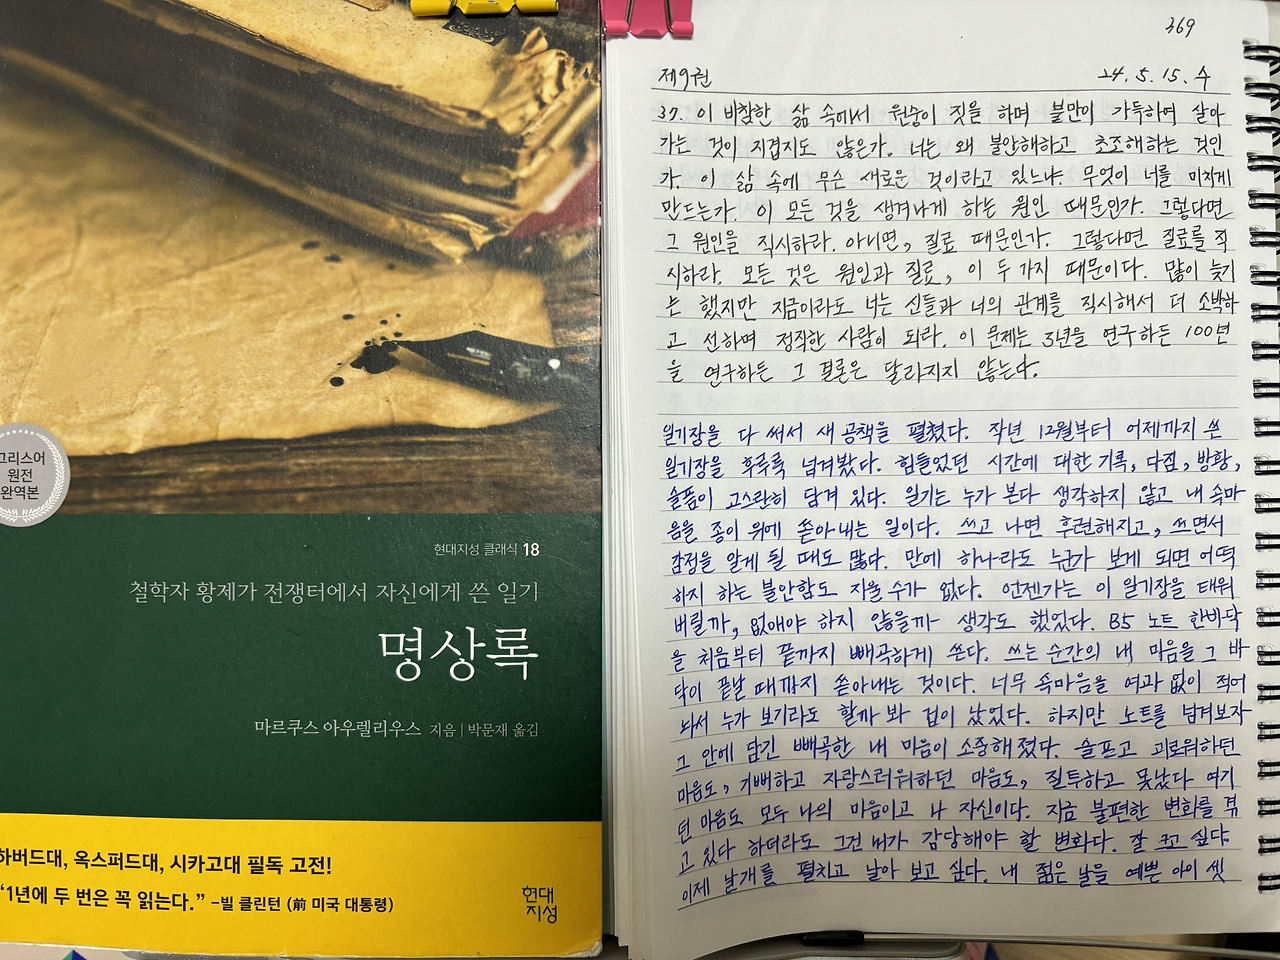 그리스어
원전
완역본
현대지성 클래식 18
철학자 황제가 전쟁터에서 자신에게 쓴 일기
명상록
마르쿠스 아우렐리우스 지음 | 박문재 옮김
하버드대, 옥스퍼드대, 시카고대 필독 고전!
“1년에 두 번은 꼭 읽는다.” –빌 클린턴 (前 미국 대통령)
현대
지성
369
제9권 24. 5. 15. 수
37. 이 비참한 삶 속에서 원숭이 짓을 하며 불만이 가득하여 살아
가는 것이 지겹지도 않은가. 너는 왜 불안해하고 초조해하는 것인
가. 이 삶 속에 무슨 새로운 것이라고 있느냐. 무엇이 너를 미치게
만드는가. 이 모든 것을 생겨나게 하는 원인 때문인가. 그렇다면
그 원인을 직시하라. 아니면, 질료 때문인가. 그렇다면 질료를 직
시하라. 모든 것은 원인과 질료, 이 두 가지 때문이다. 많이 늦기
는 했지만 지금이라도 너는 신들과 너의 관계를 직시해서 더 소박하
고 선하며 정직한 사람이 되라. 이 문제는 3년을 연구하든 100년
을 연구하든 그 결론은 달라지지 않는다.
일기장을 다 써서 새 공책을 펼쳤다. 작년 12월부터 어제까지 쓴
일기장을 후루룩 넘겨봤다. 힘들었던 시간에 대한 기록, 다짐, 방황,
슬픔이 고스란히 담겨 있다. 일기는 누가 본다 생각하지 않고 내 속마
음을 종이 위에 쏟아내는 일이다. 쓰고 나면 후련해지고, 쓰면서
감정을 알게 될 때도 많다. 만에 하나라도 누군가 보게 되면 어떡
하지 하는 불안함도 지울 수가 없다. 언젠가는 이 일기장을 태워
버릴까, 없애야 하지 않을까 생각도 했었다. B5 노트 한바닥
을 처음부터 끝까지 빼곡하게 쓴다. 쓰는 순간의 내 마음을 그 바
닥이 끝날 때까지 쏟아내는 것이다. 너무 속마음을 여과 없이 적어
놔서 누가 보기라도 할까 봐 겁이 났었다. 하지만 노트를 넘겨보자
그 안에 담긴 빼곡한 내 마음이 소중해졌다. 슬프고 괴로워하던
마음도, 기뻐하고 자랑스러워하던 마음도, 질투하고 못났다 여기
던 마음도 모두 나의 마음이고 나 자신이다. 지금 불편한 변화를 겪
고 있다 하더라도 그건 내가 감당해야 할 변화다. 잘 크고 싶다.
이제 날개를 펼치고 날아 보고 싶다. 내 젊은 날을 예쁜 아이 셋